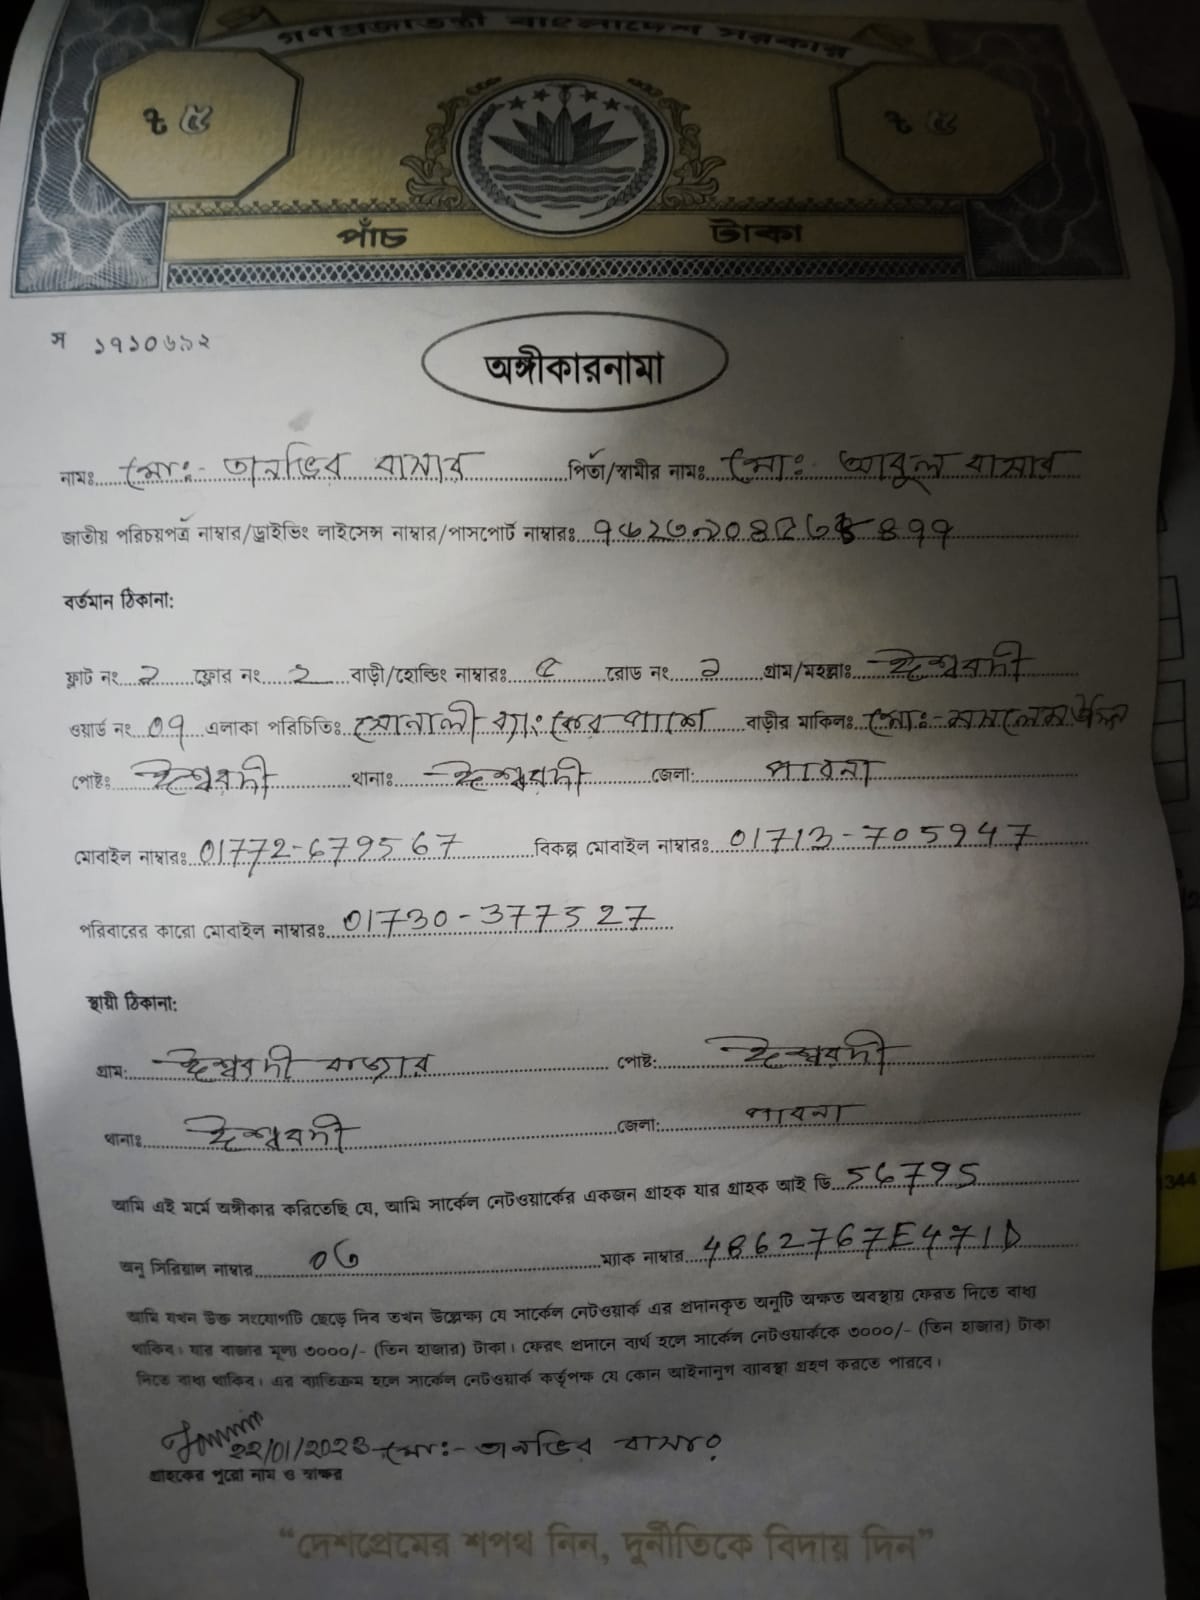 গণপ্রজাতন্ত্রী বাংলাদেশ সরকার
৳ ৫ ৳ ৫
পাঁচ টাকা
স ১৭১০৬৯২
অঙ্গীকারনামা
নামঃ মোঃ- তানভির বাসার পিতা/স্বামীর নামঃ মোঃ আবুল বাসার
জাতীয় পরিচয়পত্র নাম্বার/ড্রাইভিং লাইসেন্স নাম্বার/পাসপোর্ট নাম্বারঃ
বর্তমান ঠিকানা:
ফ্লাট নং ২ ফ্লোর নং ২ বাড়ী/হোল্ডিং নাম্বারঃ ৫ রোড নং গ্রাম/মহল্লাঃ ঈশ্বরদী
ওয়ার্ড নং ০৭ এলাকা পরিচিতিঃ সোনালী ব্যাংকের পাশে বাড়ীর মালিকঃ মোঃ-
পোষ্টঃ ঈশ্বরদী থানাঃ ঈশ্বরদী জেলা: পাবনা
মোবাইল নাম্বারঃ 01772-679567 বিকল্প মোবাইল নাম্বারঃ 01713-705947
পরিবারের কারো মোবাইল নাম্বারঃ 01730-377527
স্থায়ী ঠিকানা:
গ্রাম: ঈশ্বরদী বাজার পোষ্ট: ঈশ্বরদী
থানাঃ ঈশ্বরদী জেলা: পাবনা
আমি এই মর্মে অঙ্গীকার করিতেছি যে, আমি সার্কেল নেটওয়ার্কের একজন গ্রাহক যার গ্রাহক আই ডি 56795
অনু সিরিয়াল নাম্বার ০৬ ম্যাক নাম্বার 4B62767E471D
আমি যখন উক্ত সংযোগটি ছেড়ে দিব তখন উল্লেক্ষ্য যে সার্কেল নেটওয়ার্ক এর প্রদানকৃত অনুটি অক্ষত অবস্থায় ফেরত দিতে বাধ্য
থাকিব। যার বাজার মূল্য ৩০০০/- (তিন হাজার) টাকা। ফেরৎ প্রদানে ব্যর্থ হলে সার্কেল নেটওয়ার্ককে ৩০০০/- (তিন হাজার) টাকা
দিতে বাধ্য থাকিব। এর ব্যতিক্রম হলে সার্কেল নেটওয়ার্ক কর্তৃপক্ষ যে কোন আইনানুগ ব্যাবস্থা গ্রহণ করতে পারবে।
22/01/2023 মোঃ- তানভির বাসার
গ্রাহকের পুরো নাম ও স্বাক্ষর
“দেশপ্রেমের শপথ নিন, দুর্নীতিকে বিদায় দিন”
344